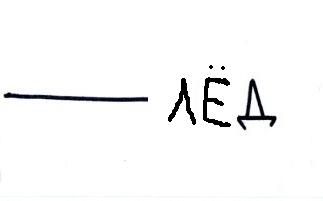 ЛЁД